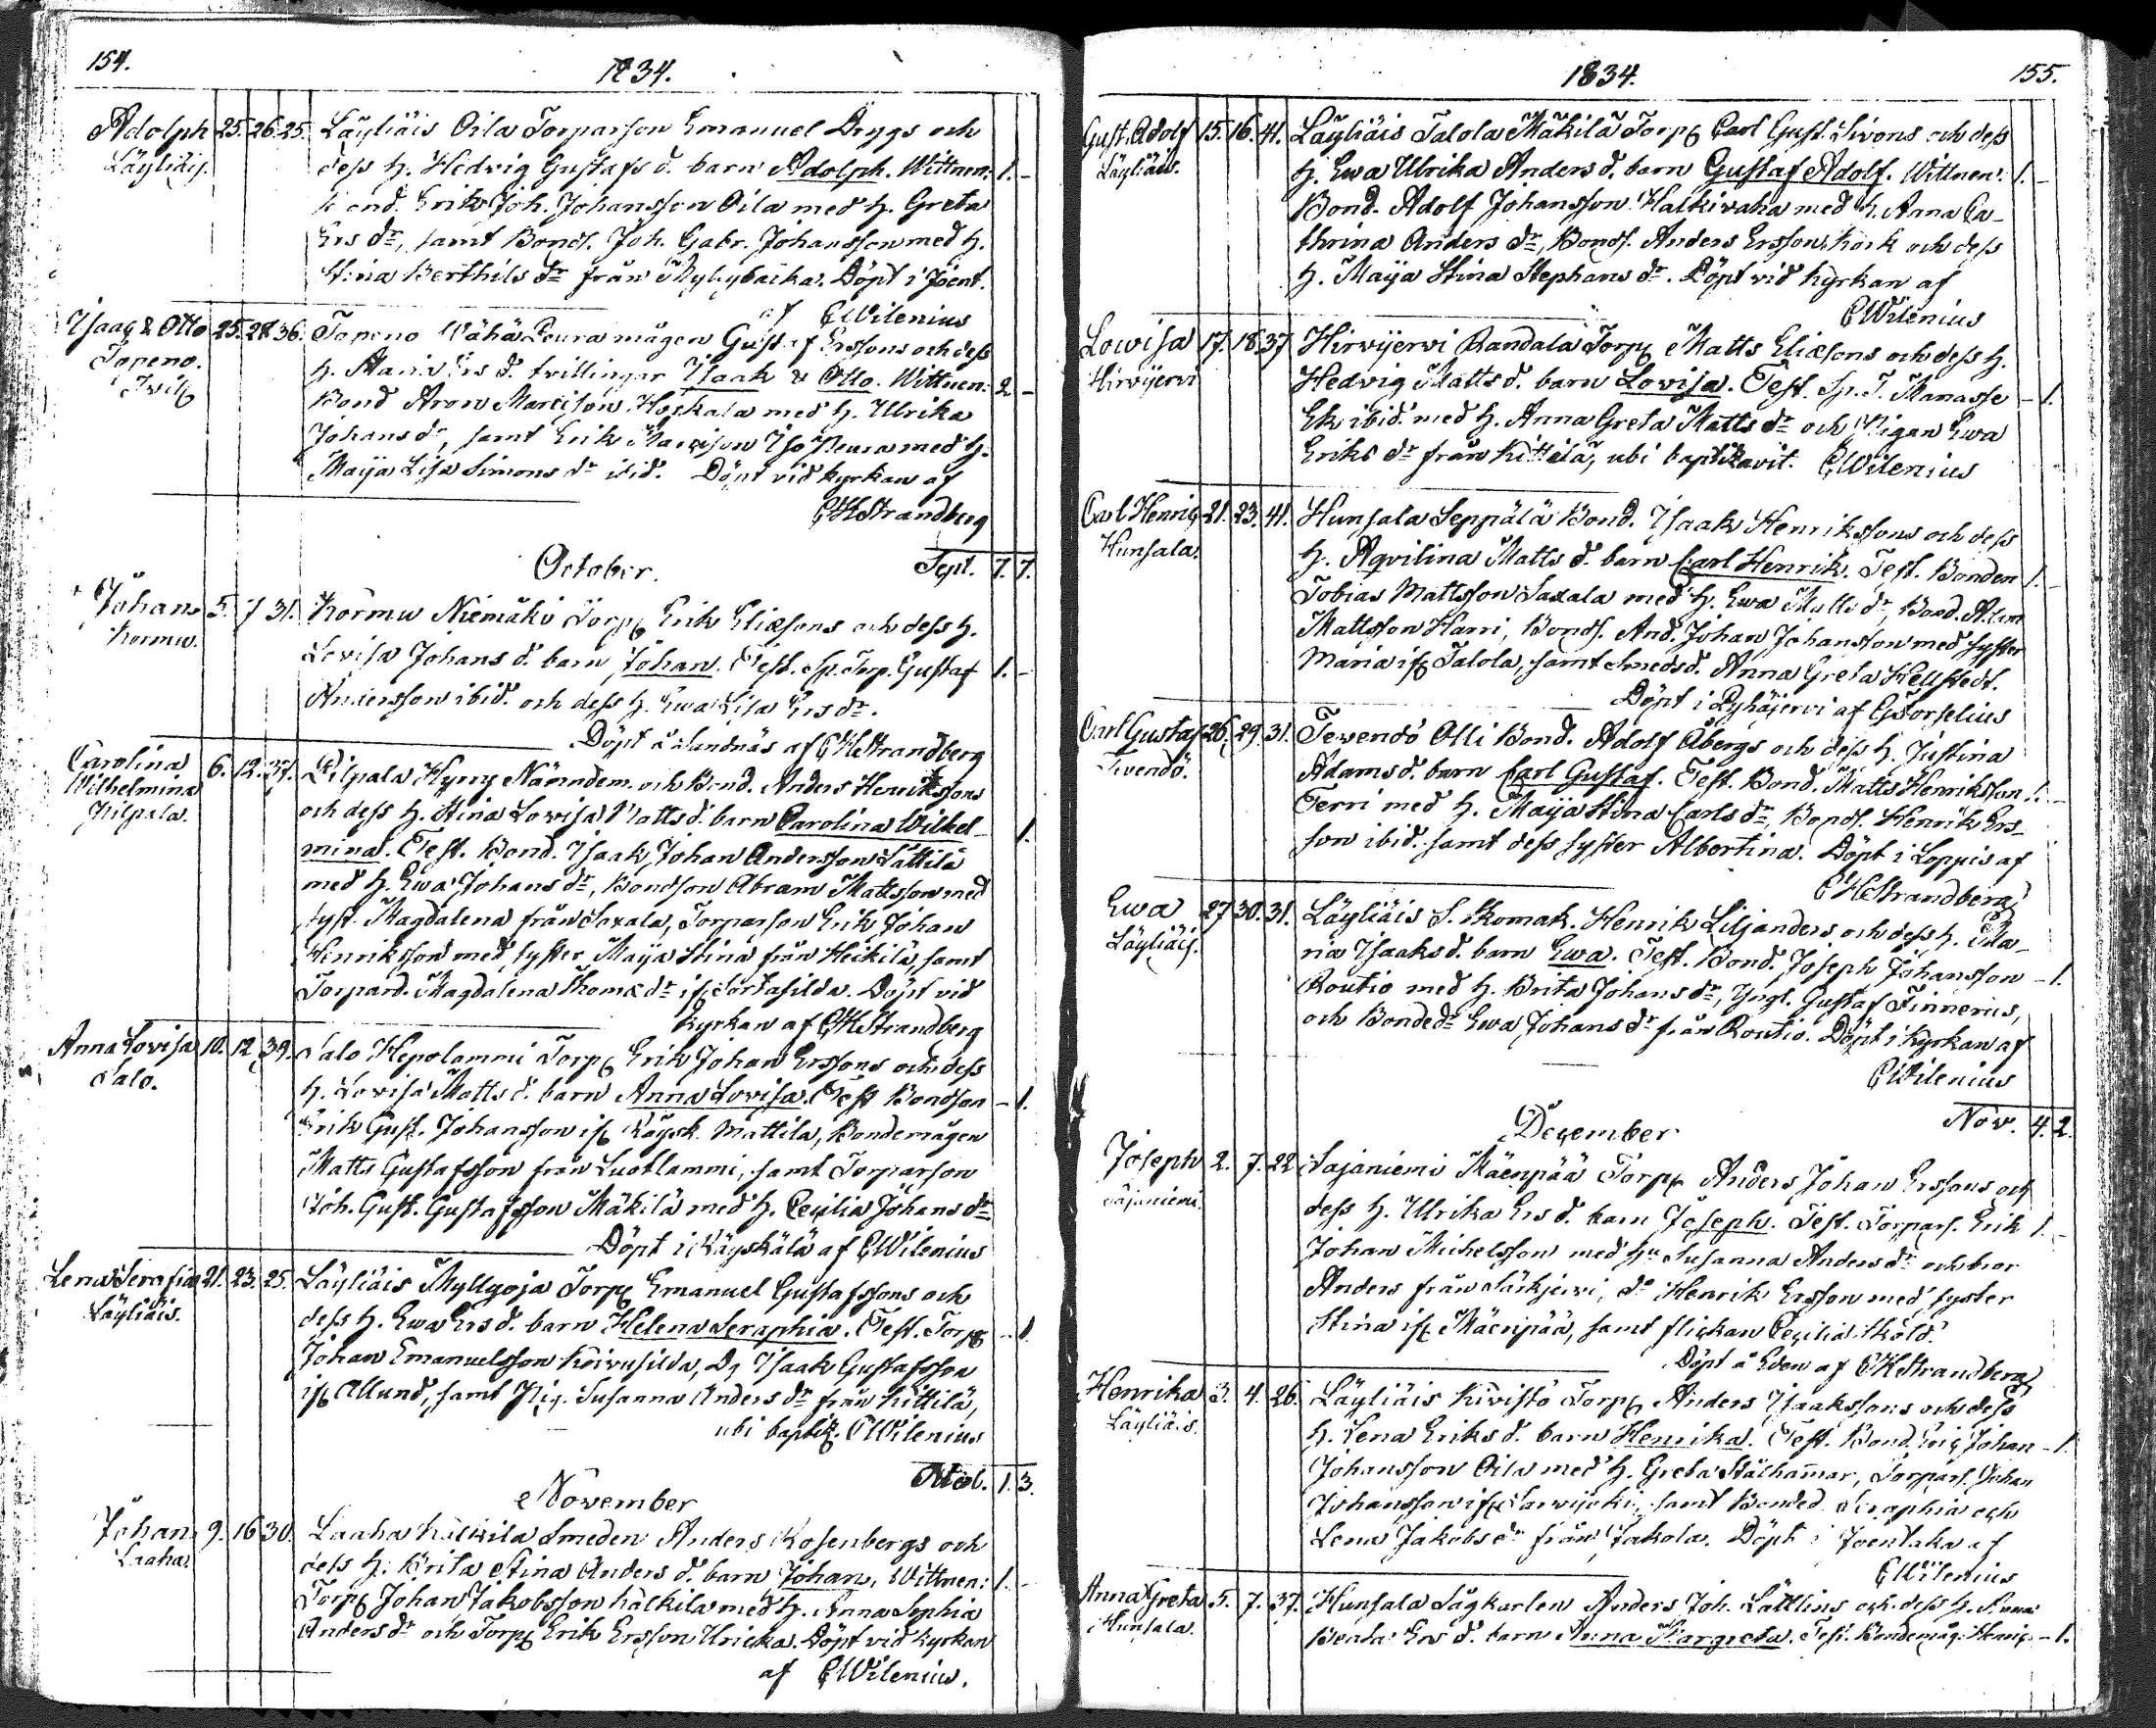 154.
1834.
Adolph 25. 26. 25. Läyliäis Oila Torparson Emanuel Drygs och
Läyliäis. dess h. Hedvig Gustafs d. barn Adolph. Wittnen: 1. -
Bond. Erik Joh. Johansson Oila med h. Greta
Ers dr, samt Bonds. Joh. Gabr. Johansson med h.
Stina Berthils dr från Myllybacka. Döpt i Joent.
af CWilenius
Isaac & Otto 25. 28. 36. Topeno Wähä Peura mågen Gustaf Erssons och dess
Topeno. h. Maria Ers d. tvillingar Isaak & Otto. Wittnen: 2 -
Twill Bond Aron Marcisson Hoskala med h. Ulrika
Johans dr, samt Erik Marcisson Iso Peura med h.
Maija Lisa Simons dr ibid. Döpt vid kyrkan af
CHStrandberg
October. Sept. 7. 7.
Johan 5. 7 31. Kormu Niemäki Torp. Erik Eliæsons och dess h.
Kormu. Lovisa Johans d. barn Johan. Test. Sp. Torp. Gustaf 1. -
Andersson ibid. och dess h. Ewa Lisa Ers dr.
Döpt å Sandnäs af CHStrandberg
Carolina 6. 12. 37. Pilpala Hyrry Nämndem. och Bond. Anders Henrikssons
Wilhelmina och dess h. Stina Lovisa Matts d. barn Carolina Wilhel- 1.
Pilpala. mina. Test. Bond. Isaak Johan Andersson Lättilä
med h. Ewa Johans dr, Bondson Abram Mattsson med
syst. Magdalena från Saxala, Torparson Erik Johan
Henriksson med syster Maija Stina från Heikilä, samt
Torpard. Magdalena Thomæ dr if. Sortasilda. Döpt vid
kyrkan af CHStrandberg
Anna Lovisa 10. 12 39. Salo Hepolammi Torp. Erik Johan Erssons och dess
Salo. h. Lovisa Matts d. barn Anna Lovisa. Test Bondson - 1.
Erik Gust. Johansson if. Räysk. Mattila, Bondemågen
Matts Gustafsson från Luotlammi, samt Torparson
Joh. Gust. Gustafsson Mäkilä med h. Cecilia Johans dr
Döpt i Räyskälä af CWilenius
Lena Serafia 21. 23. 25. Läyliäis Myllyoja Torp. Emanuel Gustafssons och
Läyliäis. dess h. Ewa Ers d. barn Helena Seraphia. Test. Torp. - 1.
Johan Emanuelsson Koivusilda, Dg Isaak Gustafsson
if. Allund, samt Pig. Susanna Anders dr från Kittilä,
ubi baptiz. CWilenius
Octob. 1. 3.
November
Johan 9. 16 30. Laaha Källkila Smeden Anders Rosenbergs och
Laaha. dess h. Brita Stina Anders d. barn Johan, Wittnen: 1. -
Torp. Johan Jakobsson Källkila med h. Anna Sophia
Anders dr och Torp. Erik Ersson Uricka. Döpt vid kyrkan
af CWilenius.
1834. 155.
Gust. Adolf 15. 16. 41. Läyliäis Talola Mäkilä Torp. Carl Gust. Sivons och dess
Läyliäis. h. Ewa Ulrika Anders d. barn Gustaf Adolf. Wittnen: 1. -
Bond. Adolf Johansson Halkivaha med h. Anna Ca-
thrina Anders dr, Bonds. Anders Ersson Kork och dess
h. Maija Stina Stephans dr. Döpt vid kyrkan af
CWilenius
Lowisa 17. 18. 37 Hirvijervi Randala Torp. Matts Eliæsons och dess h.
Hirvijervi Hedvig Matts d. barn Lovisa. Test. Sp. T. Manasse - 1.
Ek ibid. med h. Anna Greta Matts dr och Pigan Ewa
Eriks dr från Kittelä, ubi baptizavit. CWilenius
Carl Henrig 21. 23. 41. Hunsala Seppälä Bond. Isaak Henrikssons och dess
Hunsala. h. Aqvilina Matts d. barn Carl Henrik. Test. Bonden 1. -
Tobias Mattsson Saxala med h. Ewa Matts dr, Bond. Adam
Mattsson Harri, Bonds. And. Johan Johansson med syster
Maria if. Talola, samt Smedsd. Anna Greta Hellstedt.
Döpt i Pyhäjervi af GTorselius
Carl Gustaf 26. 29. 31. Tevendö Olli Bond. Adolf Åbergs och dess h. Justina
Tevendö. Adams d. barn Carl Gustaf. Test. Bond. Matts Henriksson 1. -
Terri med h. Maija Stina Carls dr, Bonds. Henrik Ers-
son ibid. samt dess syster Albertina. Döpt i Loppis af
CHStrandberg
Ewa 27 30. 31. Läyliäis S. Skomak. Henrik Liljanders och dess h. Ma-
Läyliäis. ria Isaaks d. barn Ewa. Test. Bond. Joseph Johansson - 1.
Routio med h. Brita Johans dr, Yngl. Gustaf Finnerus,
och Bondedr Ewa Johans dr från Routio. Döpt i Kyrkan af
CWilenius
December Nov. 4. 2.
Joseph 2. 7. 22 Sajaniemi Mäenpää Torp. Anders Johan Erssons och
Sajaniemi. dess h. Ulrika Ers d. barn Joseph. Test. Torpars. Erik 1. -
Johan Michelsson med hu Susanna Anders dr och bror
Anders från Särkjervi, do Henrik Ersson med syster
Stina if. Mäenpää, samt flickan Cecilia Sköld.
Döpt å Eden af CHStrandberg
Henrika 3. 4. 26. Läyliäis Kivistö Torp. Anders Isaakssons och dess
Läyliäis. h. Lena Eriks d. barn Henrika. Test. Bond. Eric Johan - 1.
Johansson Oila med h. Greta Stålhamar, Torpars. Johan
Johansson if. Sarvijoki, samt Bonded. Seraphia och
Lena Jakobs dr från Jakola. Döpt i Joentaka af
CWilenius
Anna Greta 5. 7. 37. Hunsala Sågkarlen Anders Joh. Lättlins och dess h. Anna
Hunsala. Beata Ers d. barn Anna Margreta. Test. Bondemåg. Henric - 1.